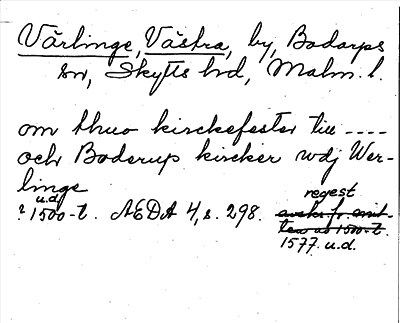 Värlinge, Västra, by, Bodarps
sn, Skytts hd, Malm. l.
om thuo kirckefester till ----
och Boderup kircker udj Wer-
linge
u.d.
? 1500-t. AEDA 4, s. 298. regest
avskr. fr. mit-
ten av 1500-t.
1577 u.d.